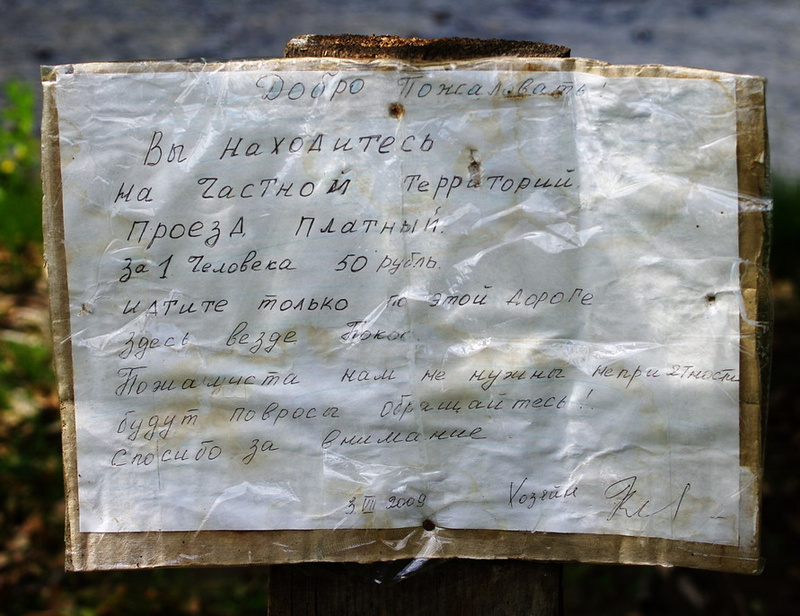 Добро Пожаловать!
Вы находитесь
на Частной Территорий.
Проезд Платный.
За 1 Человека 50 рубль.
идтите только по этой дороге
здесь везде Покос.
Пожалиста нам не нужны неприятности
будут повросы обращайтесь!
Спосибо за внимание.
3 VII 2009 Хозяин